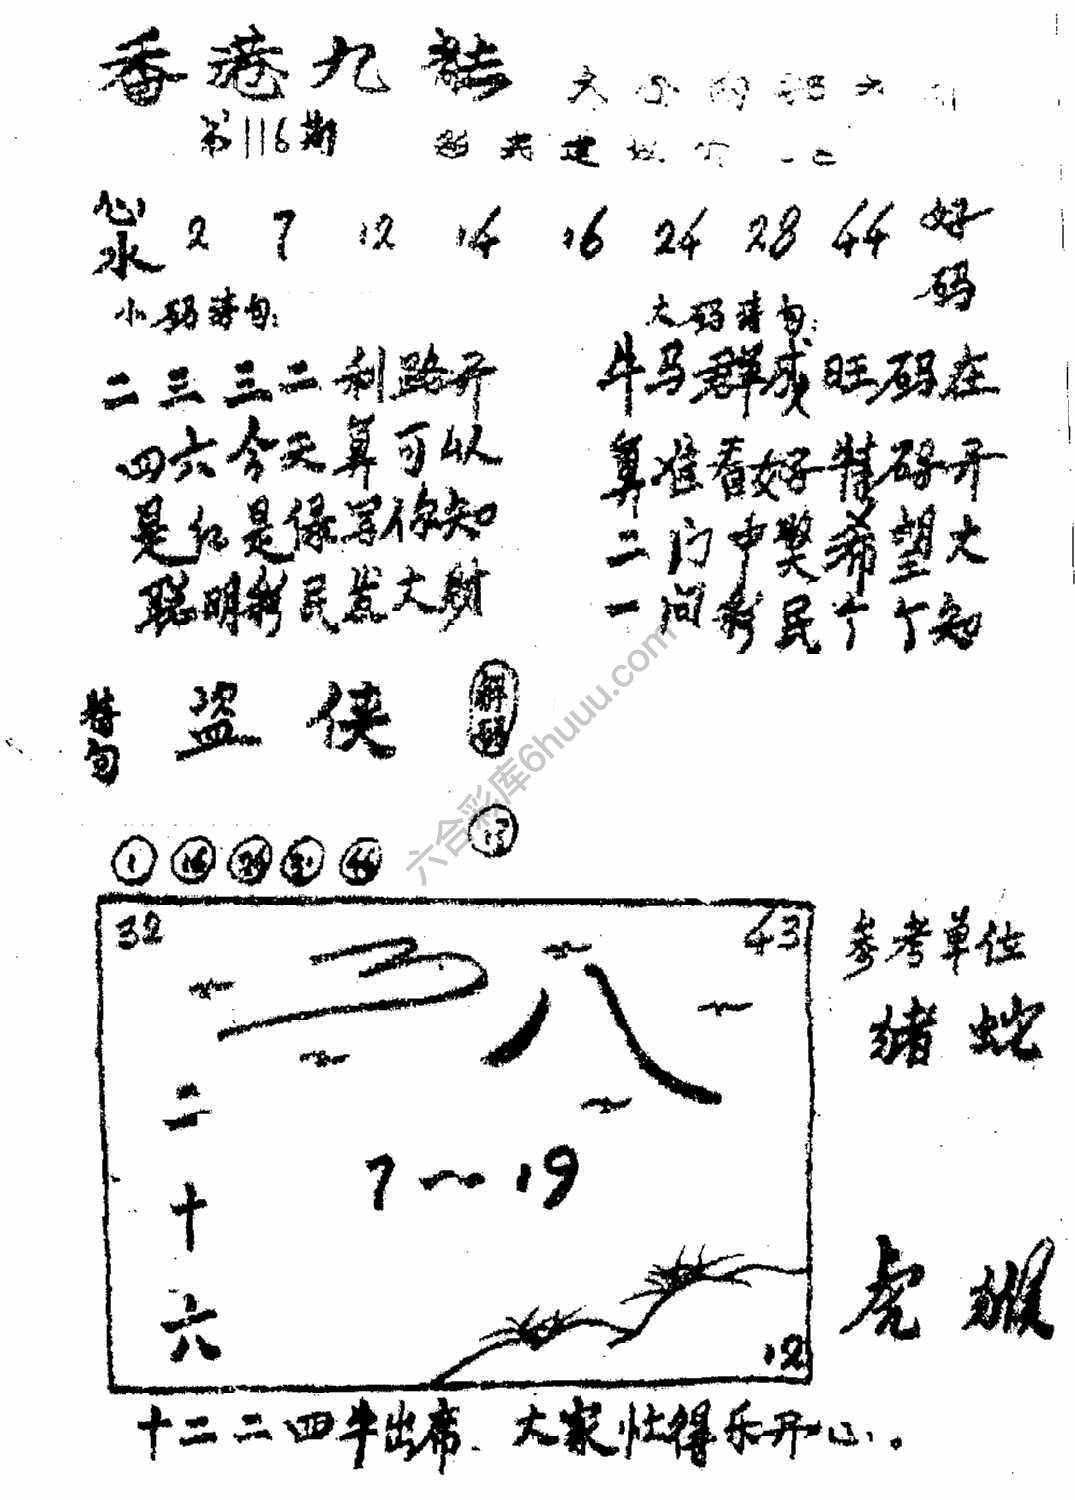 香港九龙
第116期
心水 2 7 12 14 16 24 28 44 好码
小码诗句: 大码诗句:
二三三二利路开
四六今天算可以
是红是绿写你知
聪明彩民发大财
牛马群成旺码在
算准看好特码开
二门中奖希望大
一问彩民个个知
替句 盗侠 解码
1 16 24 31 44
13
32 43
八
二十六
7~19
12
参考单位
猪蛇
虎猴
十二二四牛出席、大家忙得乐开心。
六合彩库6huuu.com